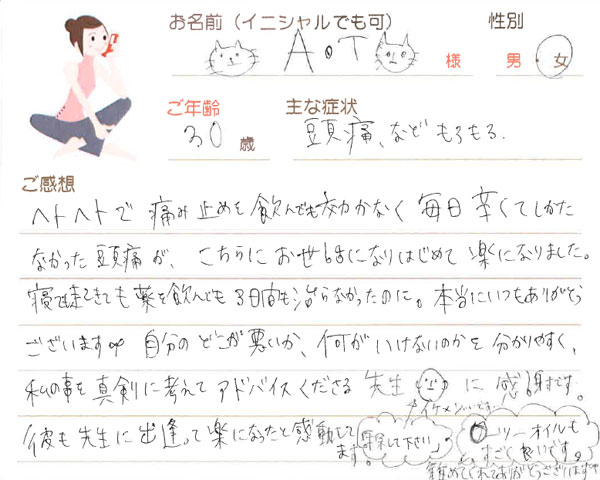 お名前（イニシャルでも可） 性別
A・T 様 男・女
ご年齢 主な症状
30 歳 頭痛、など もろもろ.
ご感想
ヘトヘトで 痛み止めを飲んでも効かなく 毎日 辛くてしかた
なかった頭痛が、こちらにお世話になりはじめて 楽になりました。
寝ても起きても薬を飲んでも3日間も治らなかったのに。本当にいつもありがとう
ございます 自分のどこが悪いか、何がいけないのかを 分かりやすく、
私の事を真剣に考えて アドバイスくださる 先生 に 感謝です。
イケメンです。
彼も先生に出逢って楽になったと感動して
ます。 して下さい ツーオイルも
すごく良いです。
てくれてありがとうございます